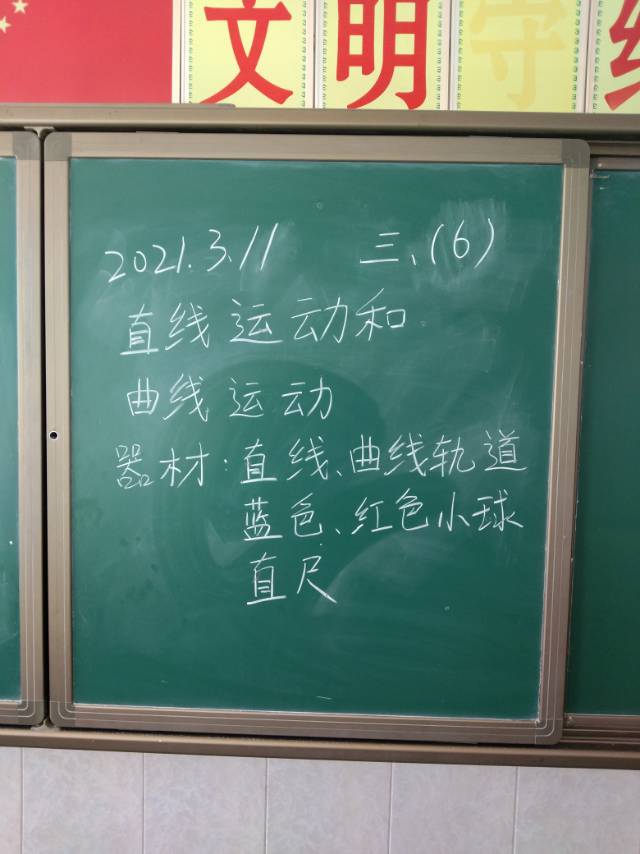 文明守纟
2021.3.11 三、(6)
直线运动和
曲线运动
器材:直线、曲线轨道
蓝色、红色小球
直尺